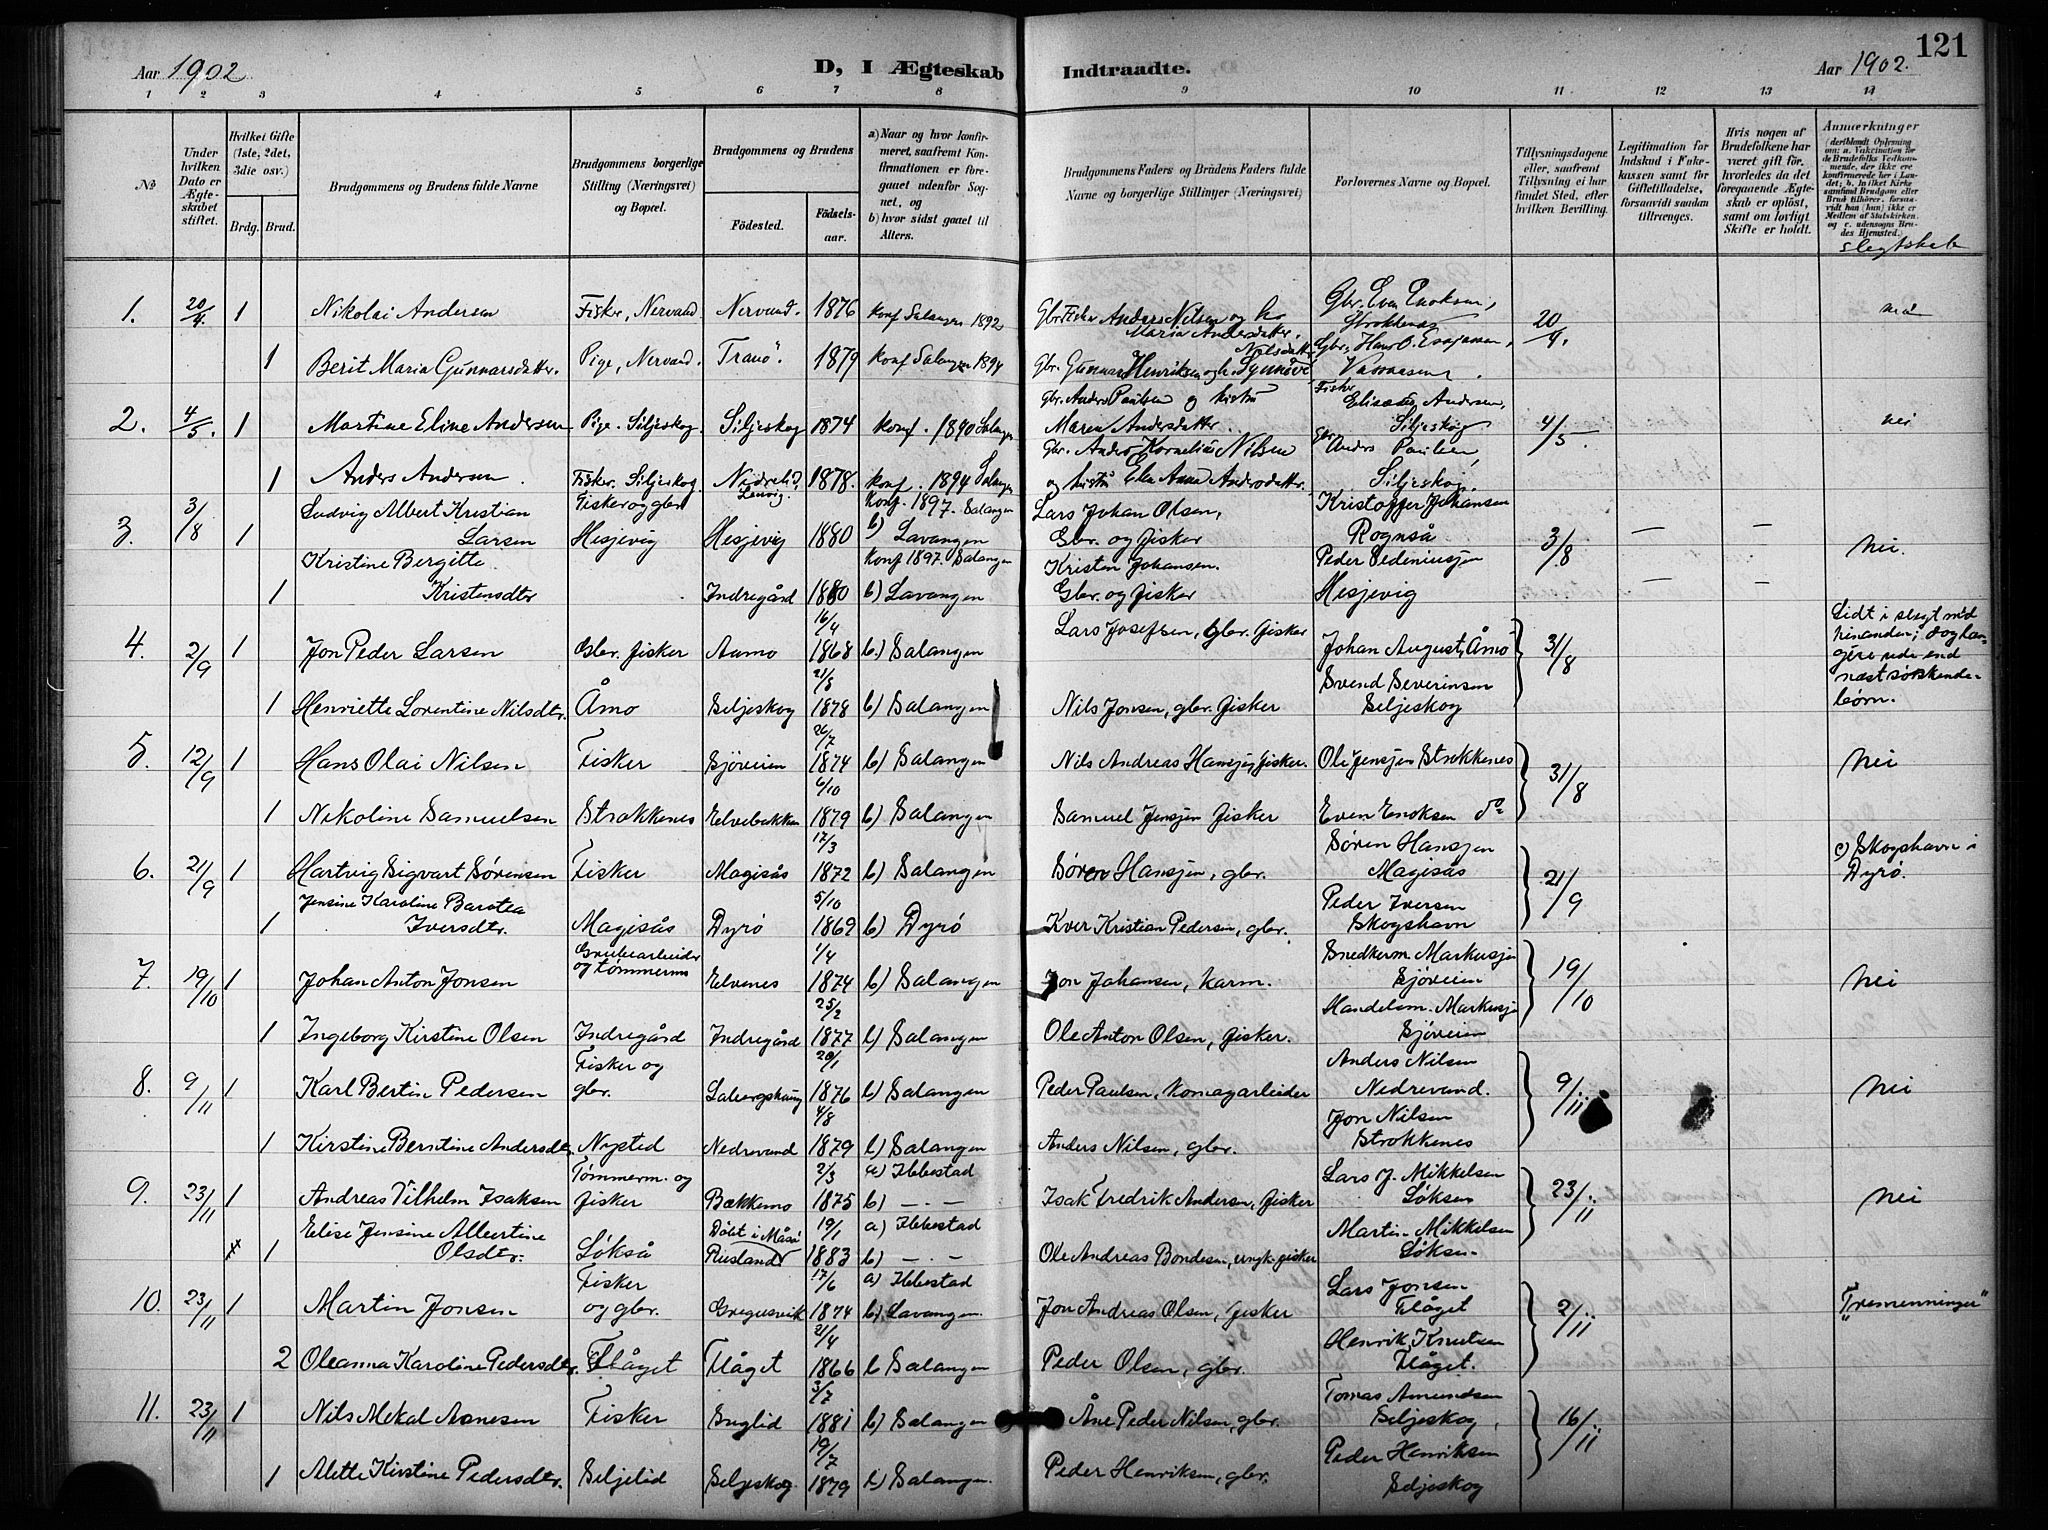 121
Aar 1902
D, I Ægteskab Indtraadte.
Aar 1902.
1 2 3 4 5 6 7 8 9 10 11 12 13 14
No
Under hvilken Dato er Ægteskabet stiftet.
Hvilket Gifte (1ste, 2det, 3die osv.)
Brdg. Brud.
Brudgommens og Brudens fulde Navne
Brudgommens borgerlige Stilling (Næringsvei) og Bopæl.
Brudgommens og Brudens
Fødested.
Fødselsaar.
a) Naar og hvor konfirmeret, saafremt Konfirmationen er foregaaet udenfor Sognet, og
b) hvor sidst gaaet til Alters.
Brudgommens Faders og Brudens Faders fulde Navne og borgerlige Stillinger (Næringsvei)
Forlovernes Navne og Bopæl.
Tillysningsdagene eller, saafremt Tillysning ei har fundet Sted, efter hvilken Bevilling.
Legitimation for Indskud i Enkekassen samt for Giftetilladelse, forsaavidt saadan tiltrænges.
Hvis nogen af Brudefolkene har været gift før, hvorledes da det foregaaende Ægteskab er opløst, samt om lovligt Skifte er holdt.
Anmærkninger (deriblandt Oplysning om: a. Vaccination for de Brudefolks Vedkommende, der ikke ere konfirmerede her i Landet; b. hvilket Kirkesamfund Brudgom eller Brud tilhører, forsaavidt han (hun) ikke er Medlem af Statskirken, og c. udensogns Brudes Hjemsted.)
Slegtskab
1. 20/4. 1 Nikolai Andersen Fisker, Nervand. Nervand. 1876 Konf Salangen 1892 Gbr Fisker Anders Nilsen og h. Maria Andersdatter. Gbr. Even Enoksen, Strokkenes 20/4. nei
1 Berit Maria Gunnarsdatter. Pige, Nervand. Tranö. 1879 Konf Salangen 1894 Gbr. Gunnar Henriksen og h. Synnøve Nilsdatter Gbr. Hans O.
2. 4/5. 1 Martine Eline Andersen Pige. Siljeskog. Siljeskog 1874 Konf. 1890 Salangen Gbr. Anders Paulsen og hustru Maren Andersdatter. Fisker Andersen, Siljeskog 4/5 nei
1 Anders Andersen. Fisker. Siljeskog. Lenvig. 1878. Konf. 1894 Salangen Gbr. Anders Kornelius Nilsen og hustru Elen Anna Andersdatter. Gbr Anders Paulsen, Siljeskog.
3. 3/8 1 Ludvig Albert Kristian Larsen Fisker og gbr Hesjevig Hesjevig 1880 Konf. 1897. Salangen b) Lavangen Lars Johan Olsen, Gbr. og fisker Kristoffer Johansen Rognså 3/8 — — Nei.
1 Kristine Bergitte Kristensdtr Indregård 1880 Konf 1897. Salangen b) Lavangen Kristen Johansen. Gbr. og fisker Peder Pedeniusjen Hesjevig — —
4. 2/9 1 Jon Peder Larsen Gbr. fisker Aamo 16/4 1868 b.) Salangen Lars Josefsen, Gbr. fisker Johan August, Åmo 31/8 Lidt i slegt med hinanden; dog længere ude end næstsøskendebørn.
1 Henriette Lorentine Nilsdtr. Åmo Seljeskog 21/8 1878 b) Salangen Nils Jonsen, gbr. fisker Svend Severinsen Seljeskog
5. 12/9 1 Hans Olai Nilsen Fisker Sjøveien 26/7 1874 b) Salangen Nils Andreas Hansjen, fisker. Ole Jensjen Strokkenes 31/8 Nei
1 Nikoline Samuelsen Strokkenes Elvebakken 6/10 1879 b) Salangen Samuel Jensjen fisker Even Enoksen do
6. 21/9 1 Hartvig Sigvart Sørensen Fisker Magisås 17/3 1872 b) Salangen Søren Hansjen, gbr. Søren Hansjen Magisås 21/9 c) Skogshavn i Dyrø.
1 Jensine Karoline Barotea Iversdtr. Magisås Dyrø 5/10 1869 b) Dyrø Iver Kristian Pedersen, gbr. Peder Iversen Skogshavn
7. 19/10 1 Johan Anton Jonsen Grubearbeider og tømmerm. Elvenes 1/4 1874 b) Salangen Jon Johansen, karm. Snedkerm. Markusjen Sjøveien 19/10 Nei
1 Ingeborg Kirstine Olsen Indregård Indregård 25/2 1877 b) Salangen Ole Anton Olsen, fisker. Handelsm. Markusjen Sjøveien
8. 9/11 1 Karl Bertin Pedersen Fisker og gbr. 20/1 1876 b) Salangen Peder Paulsen, komagarbeider Anders Nilsen Nedrevand. 9/11 Nei
1 Kirstine Berntine Andersdtr. Nysted Nedrevand 4/8 1879 b) Salangen Anders Nilsen, gbr. Jon Nilsen Strokkenes
9. 23/11 1 Andreas Vilhelm Isaksen Tømmerm. og fisker Bækkemo 2/3 1875 a) Ibbestad b) — - — Isak Fredrik Andersen, fisker Lars J. Mikkelsen Løksen 23/11 Nei
x 1 Elise Jensine Albertine Olsdtr. Løkså Døbt i Måsø Rusland 19/1 1883 a) Ibbestad b) — - — Ole Andreas Bondesen, ungk. fisker Martin Mikkelsen Løksen
10. 23/11 1 Martin Jonsen Fisker og gbr. Gregusvik 17/6 1874 a) Ibbestad b) Lavangen. Jon Andreas Olsen, fisker Lars Jonsen Flåget 2/11 "Tremenninger"
2 Oleanna Karoline Pedersdtr. Flåget Flåget 21/4 1866 b Salangen Peder Olsen, gbr. Henrik Knutsen Flåget.
11. 23/11 1 Nils Mekal Arnesen Fisker Suglid 3/7 1881 b) Salangen Åne Peder Nilsen, gbr. Tomas Amundsen Seljeskog, 16/11
1 Alette Kirstine Pedersdtr. Seljelid Seljeskog 19/7 1879 b) Salangen. Peder Henriksen, gbr. Peder Henriksen Seljeskog